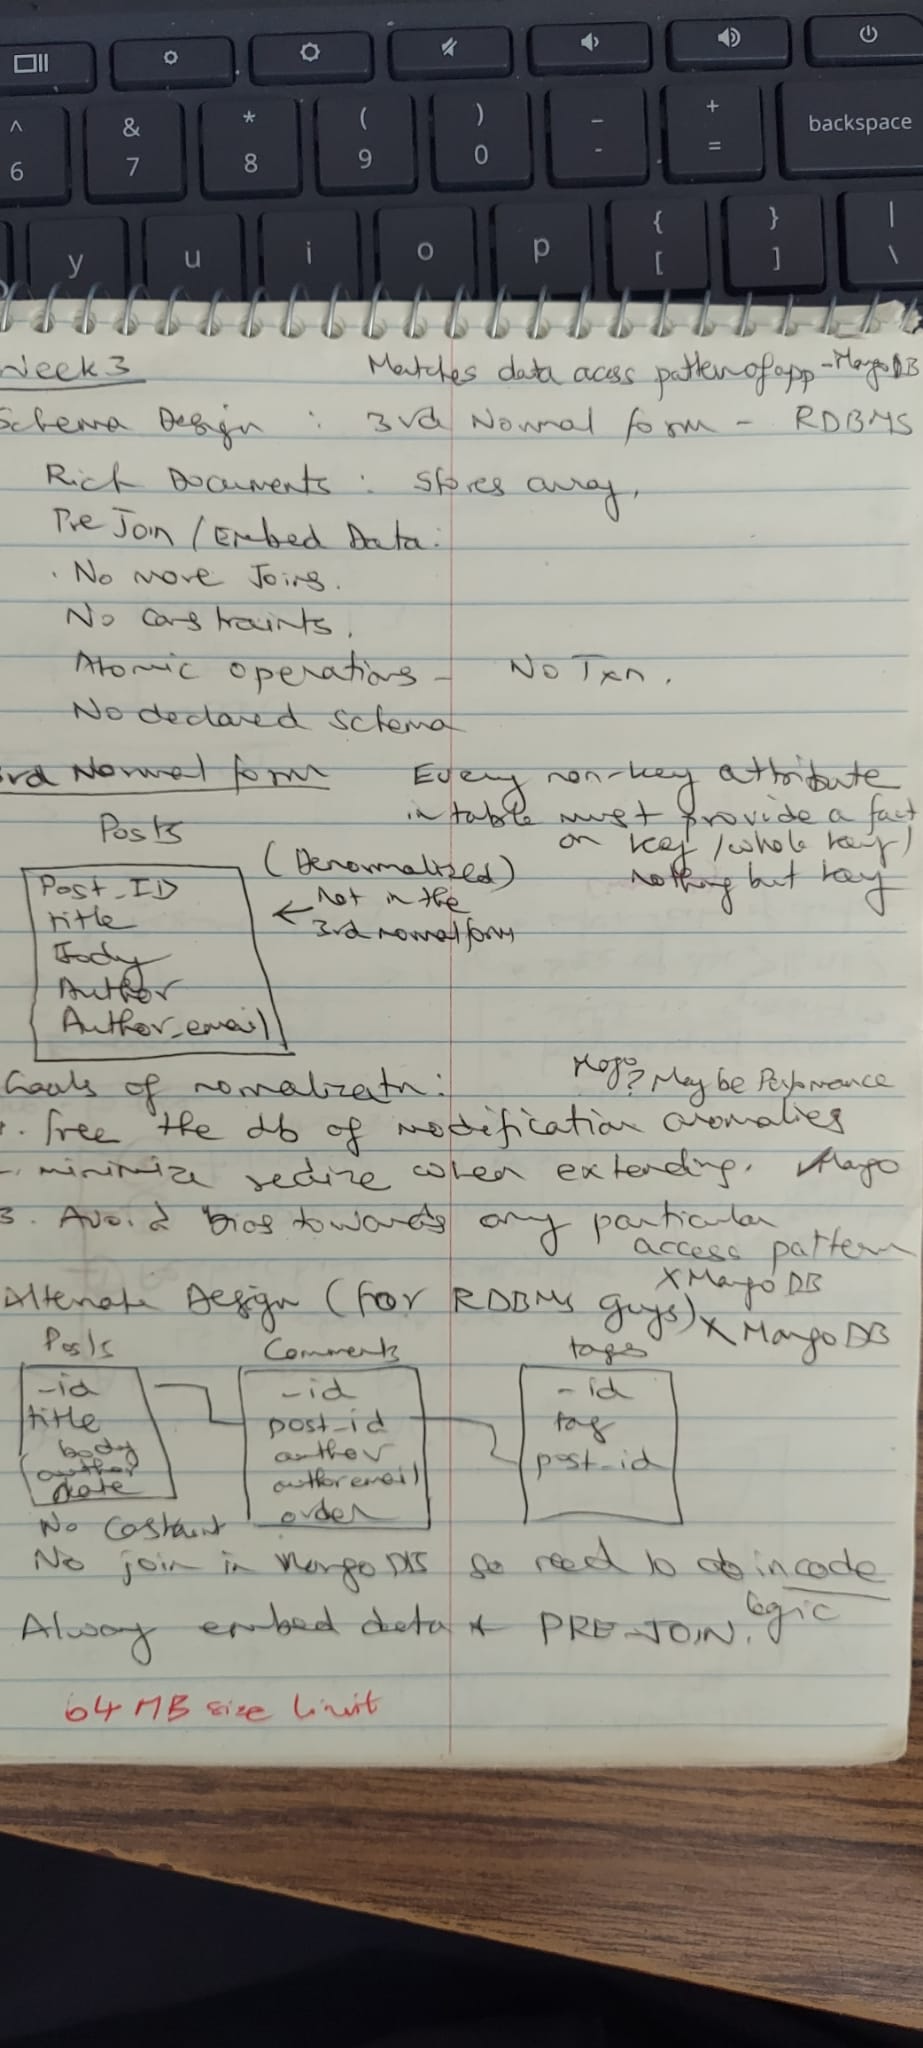 ^ & * ( ) _ + backspace
6 7 8 9 0 - =
y u i o p { [ } ] | \
Week 3
Matches data acess pattern of app - MongoDB
Schema Design : 3rd Normal form - RDBMS
Rich Documents : Stores array,
Pre Join / Embed Data :
. No more Joins.
No constraints.
Atomic operations - No Txn.
No declared schema
3rd Normal form
Every non-key attribute
in table must provide a fact
on key / whole key /
nothing but key
Posts
Post_ID
title
Body
Author
Author_email
(Denormalized)
← Not in the
3rd normal form
Goals of normalizatn :
Mogo? May be Performance
1. free the db of modification anomalies
- minimize redize when extending. Mongo
3. Avoid bias towards any particular
access pattern
X MongoDB
Alternate Design (for RDBMS guys) X MongoDB
Posts
-id
title
body
author
date
Comments
-id
post_id
author
author email
order
tages
-id
tag
post_id
No Costraint
No join in MongoDB so need to do in code
logic
Alway embed data & PRE-JOIN.
64 MB size limit